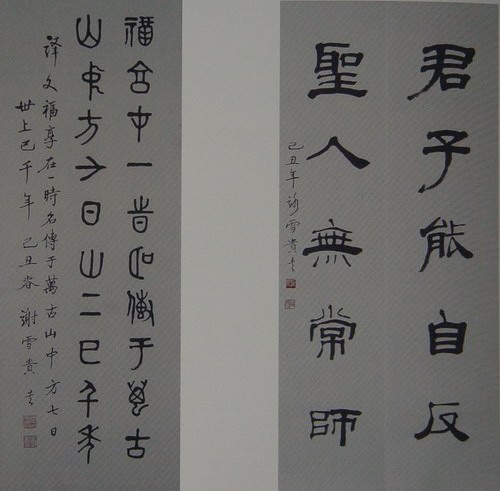 君子能自反
聖人無常師
己丑年谢雪貴书
福享在一時名傳于萬古
山中方七日世上已千年
译文福享在一時名傳于萬古山中方七日
世上已千年 己丑春 谢雪貴书